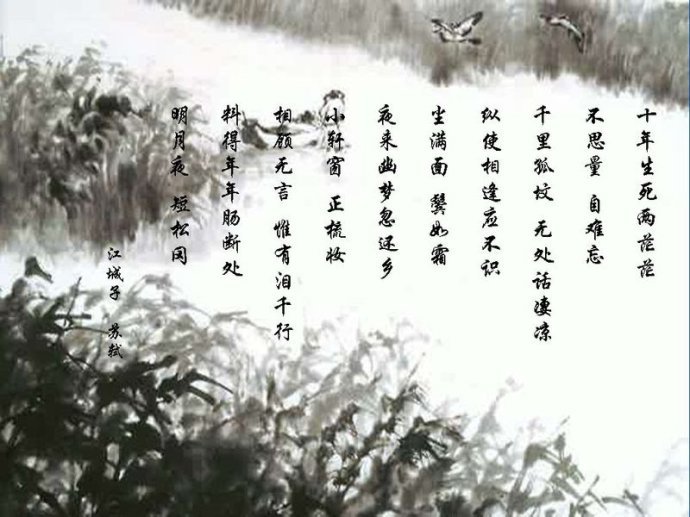 十年生死两茫茫
不思量 自难忘
千里孤坟 无处话凄凉
纵使相逢应不识
尘满面 鬓如霜
夜来幽梦忽还乡
小轩窗 正梳妆
相顾无言 惟有泪千行
料得年年肠断处
明月夜 短松冈
江城子 苏轼